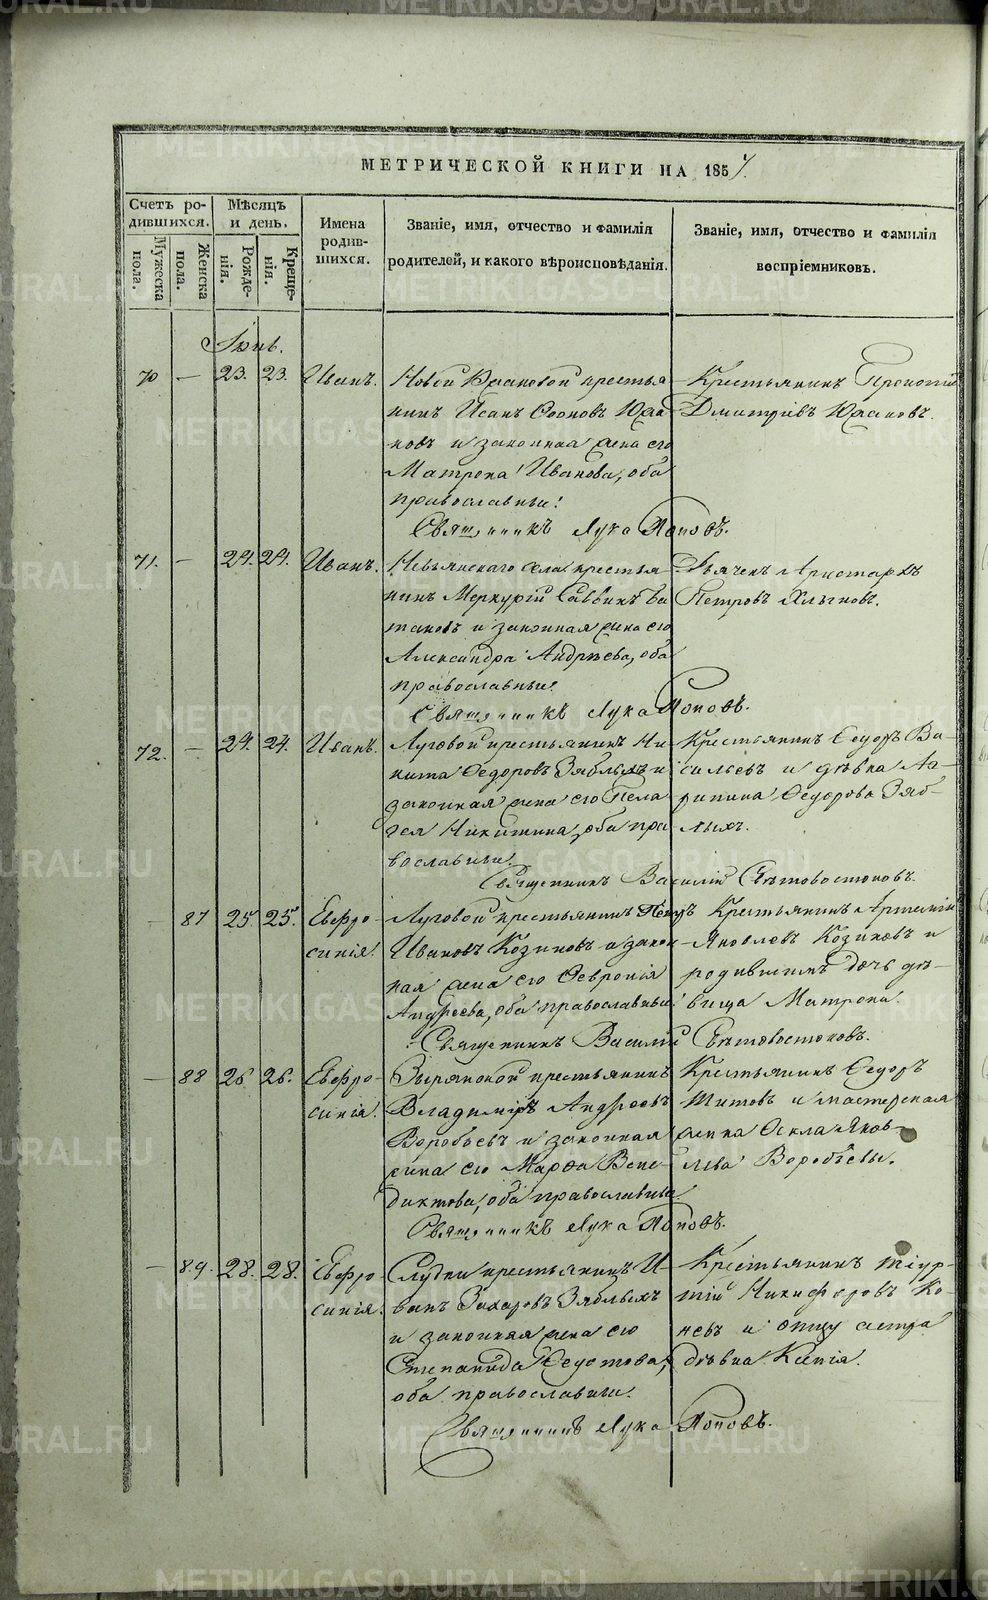 МЕТРИЧЕСКОЙ КНИГИ НА 1857.
Счетъ ро-
дившихся.
Мужеска
пола.
Женска
пола.
Мѣсяцъ
и день.
Рожде-
нія.
Креще-
нія.
Имена
родив-
шихся.
Званіе, имя, отчество и фамилія
родителей, и какого вѣроисповѣданія.
Званіе, имя, отчество и фамилія
воспріемниковъ.
70 — 23. 23. Иванъ.
крестья
нинъ Юша
ковъ и законная жена его
Матрона Иванова, оба
православные.
Священникъ Лука Поповъ.
Крестьянинъ
Дмитріевъ Юшаковъ.
71. — 24. 24. Иванъ.
Невьянскаго села крестья
нинъ Меркурій Саввинъ
и законная жена его
Александра Андреева, оба
православные.
Священникъ Лука Поповъ.
Дьячекъ Аристархъ
Петровъ
72. — 24. 24. Иванъ.
Луговой крестьянинъ Ни
кита Ѳедоровъ Зяблыхъ и
законная жена его Пела
гея Никитина, оба пра
вославные.
Священникъ Василій Свѣтовостоковъ.
Крестьянинъ Ѳедоръ Ва-
сильевъ и дѣвка Аг-
рипина Ѳедорова Зяб-
лыхъ.
— 87 25 25. Евфро-
синія.
Луговой крестьянинъ Петръ
Ивановъ Козиковъ и закон
ная жена его Ѳевронія
Андреева, оба православные.
Священникъ Василій Свѣтовостоковъ.
Крестьянинъ Артемій
Яковлевъ Козиковъ и
родившихъ дочь дѣ-
вица Матрона.
— 88 26. 26. Евфро-
синія.
Зыряновой крестьянинъ
Владиміръ Андреевъ
Воробьевъ и законная
жена его Марѳа Вене-
диктова, оба православные
Священникъ Лука Поповъ.
Крестьянинъ Ѳедоръ
Титовъ и мастерская
жена Ѳекла Яков-
лева Воробьевы.
— 89. 28. 28. Евфро
синія.
Слудки крестьянинъ И-
ванъ Захаровъ Зяблыхъ
и законная жена его
Степанида Ѳедотова,
оба православные.
Священникъ Лука Поповъ.
Крестьянинъ
Никифоровъ Ко-
невъ и сестра
дѣвка Ксенія.
METRIKI.GASO-URAL.RU